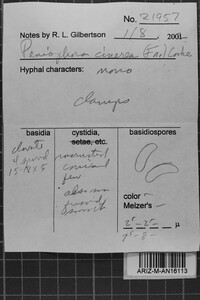 No. 21957
Notes by R. L. Gilbertson 11/8, 2001
Peniophora cinerea (Fr.) Cooke
Hyphal characters: mono
clamps
basidia
cystidia, setae, etc.
basidiospores
clavate
4 spored
encrusted
conical
few
also
smooth
color –
Melzer's –
µ
ARIZ-M-AN16113